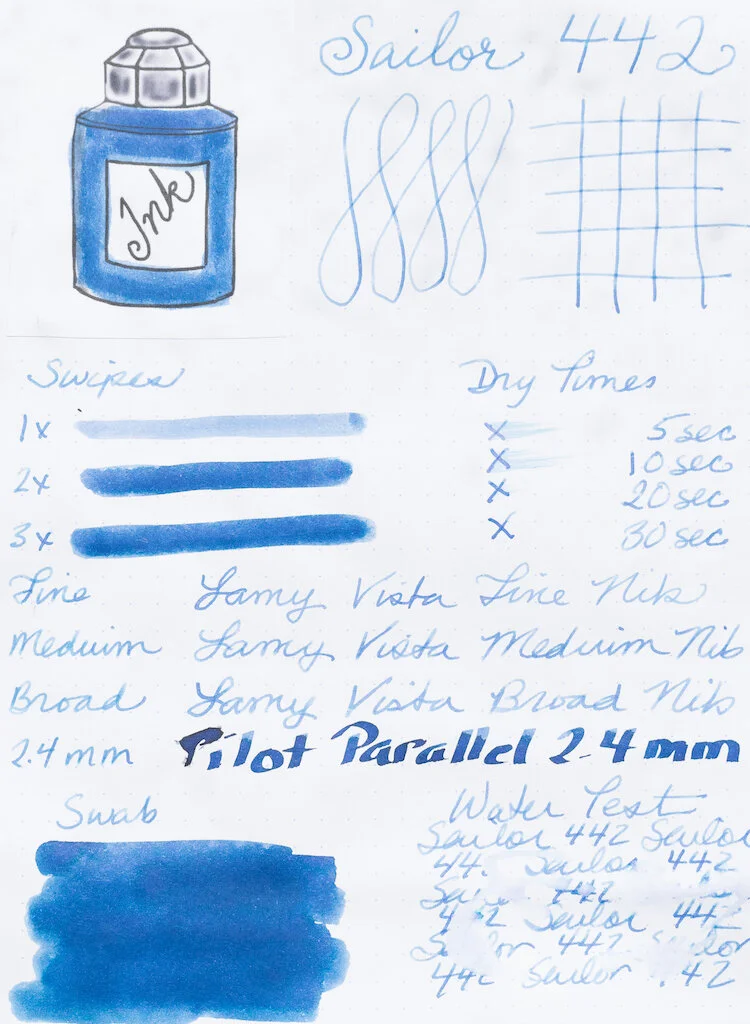 Ink
Sailor 442
Swipes
Dry Times
1x
x 5 sec
2x
x 10 sec
x 20 sec
3x
x 30 sec
Fine Lamy Vista Fine Nib
Medium Lamy Vista Medium Nib
Broad Lamy Vista Broad Nib
2.4 mm Pilot Parallel 2.4 mm
Swab
Water Test
Sailor 442 Sailor
44 Sailor 442
442
Sailor 442
442
Sailor